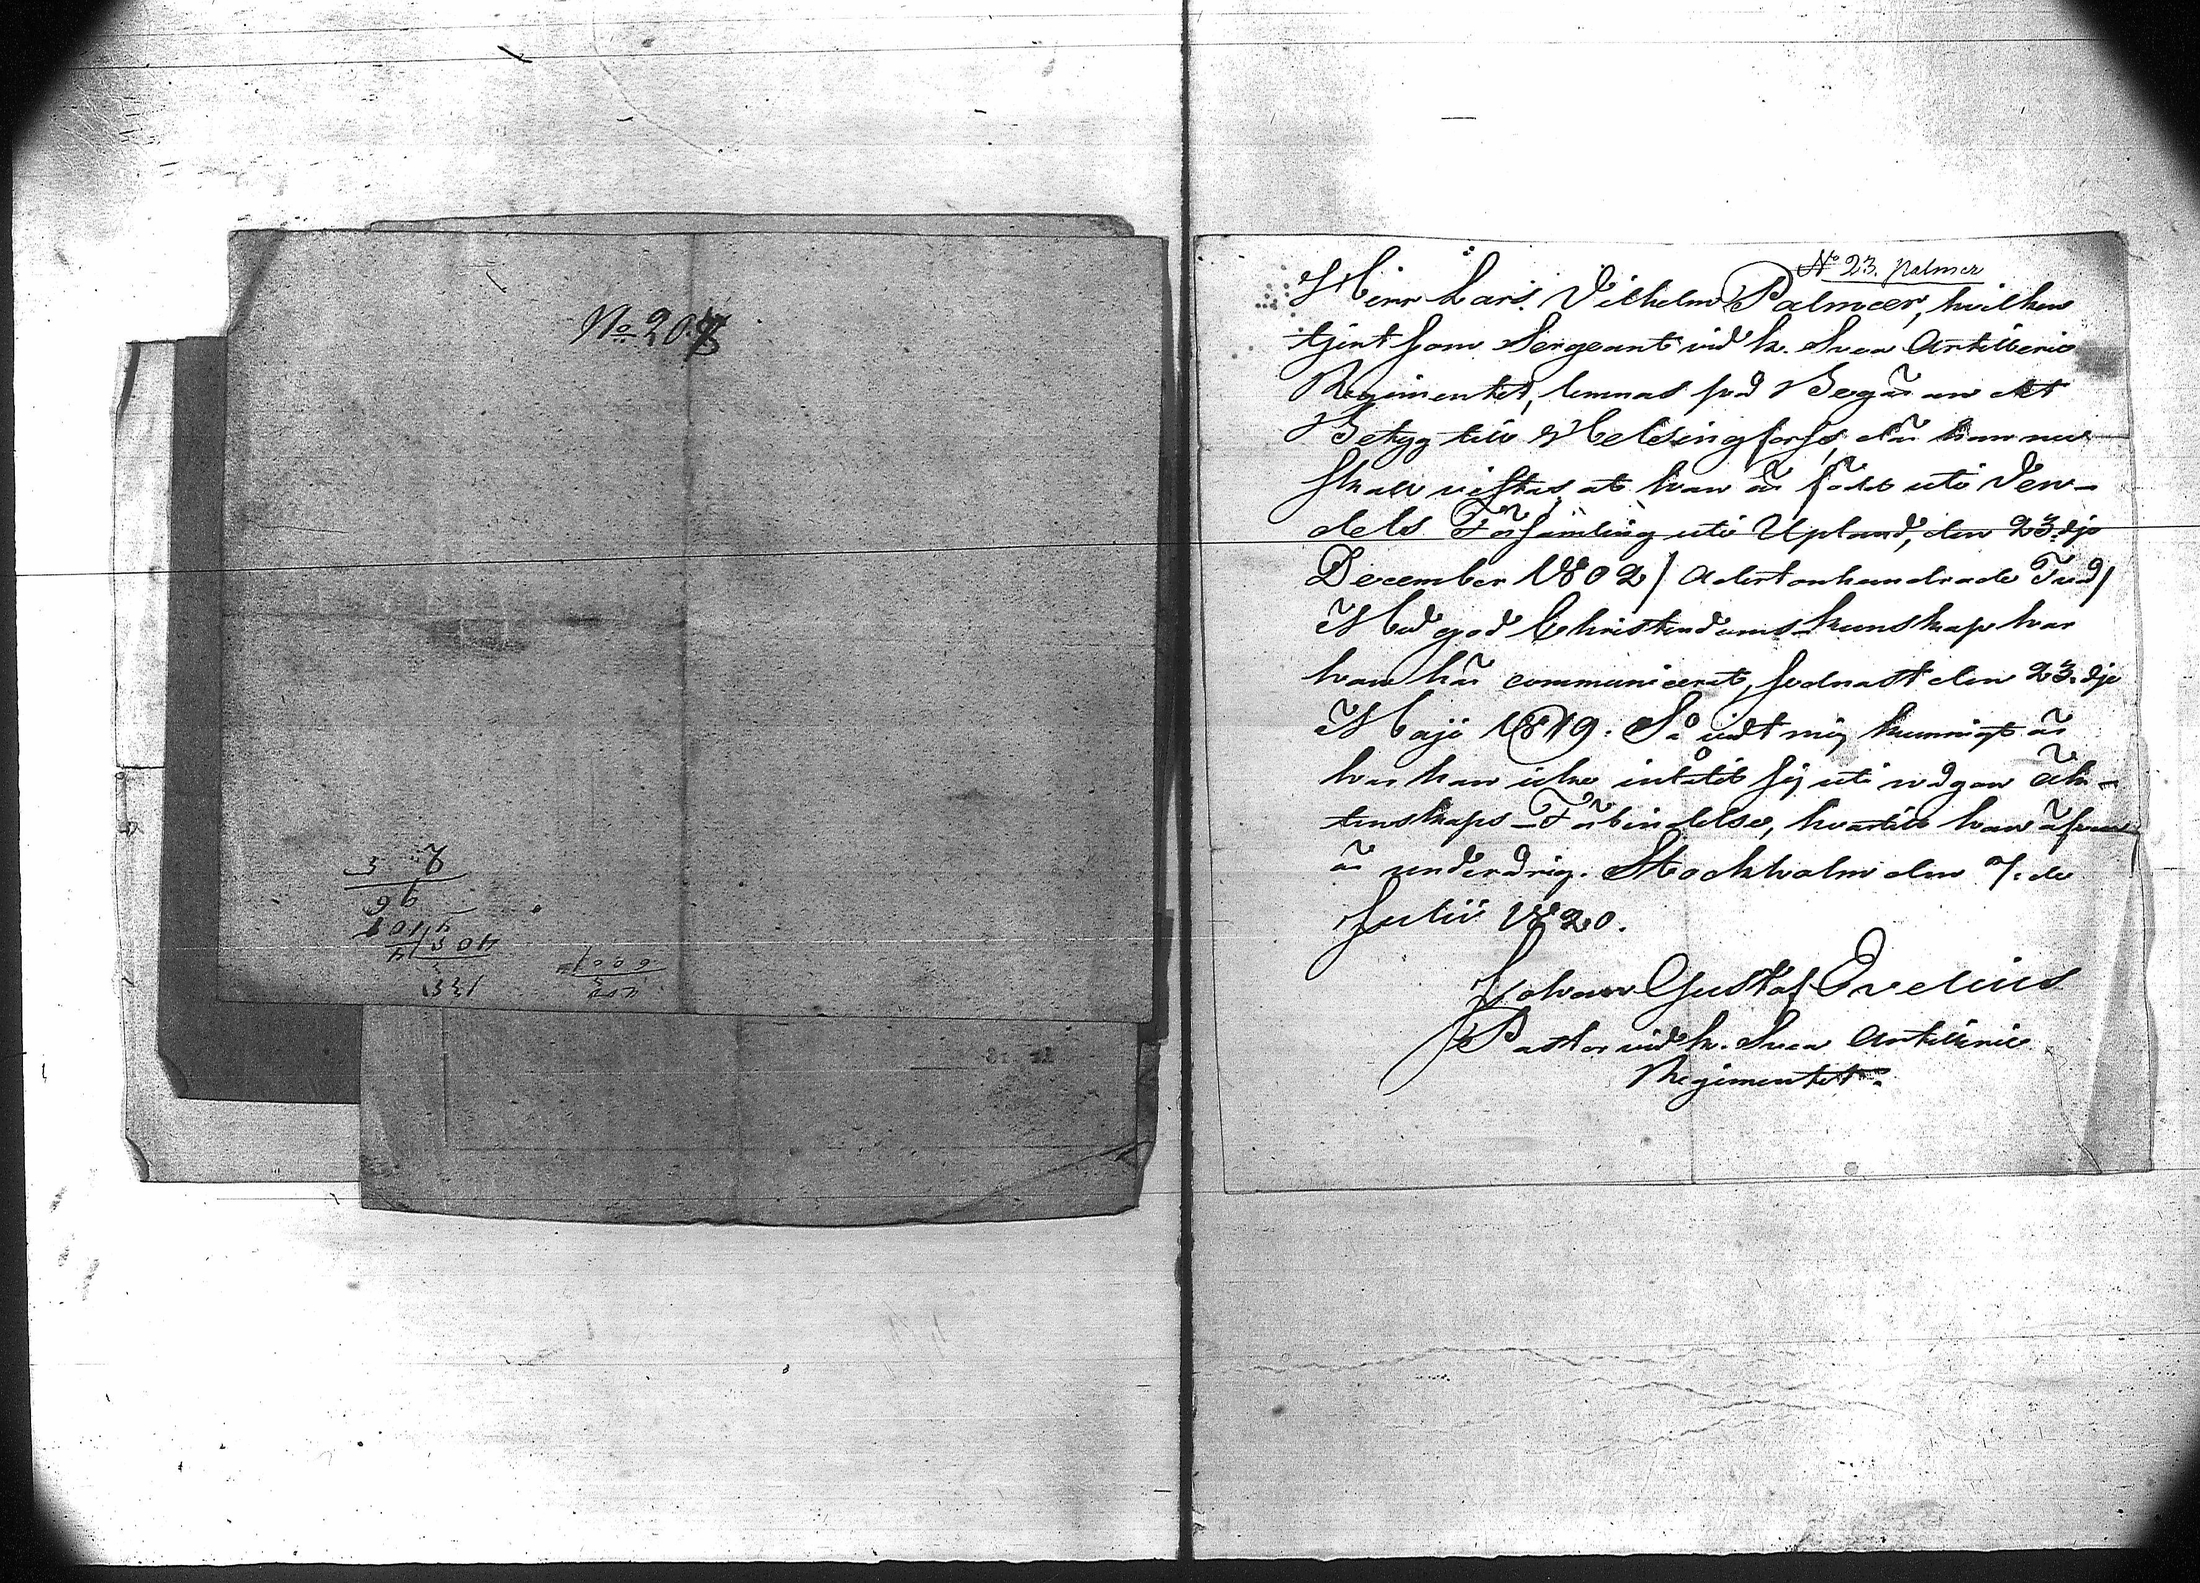 No 20.
No 23. Palmer
Herr Lars Vilhelm Palmær, hvilken
tjent som Sergeant vid k. Svea Artilleri
Regimentet, lemnas på Begäran det
Betyg till Helsingfors, där han nu
skall vistas, at han är född uti Ven-
dels Församling uti Upland, den 23.dje
December 1802 / adertonhundrade Två /
Med god Christendoms-kunskap har
han här communicerat, sednast den 23.dje
Maji 1819. Så vidt mig kunnigt är
har han icke inlåtit sig uti någon äk-
tenskaps-Förbindelse, hvartill han äfven
är underårig. Stockholm den 7.de
Julii 1820.
Johan Gustaf
Pastor vid k. Svea Artilleri
Regimentet.